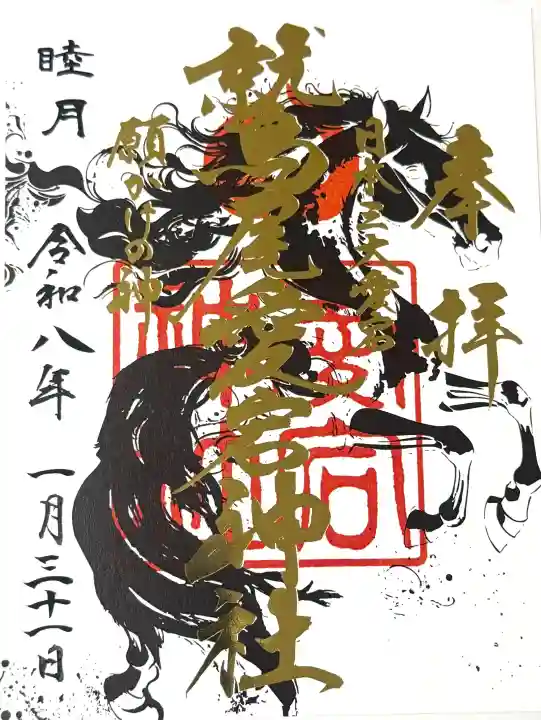 奉拝
日本三大愛宕
鷲尾愛宕神社
願かけの神
睦月
令和八年 一月三十一日